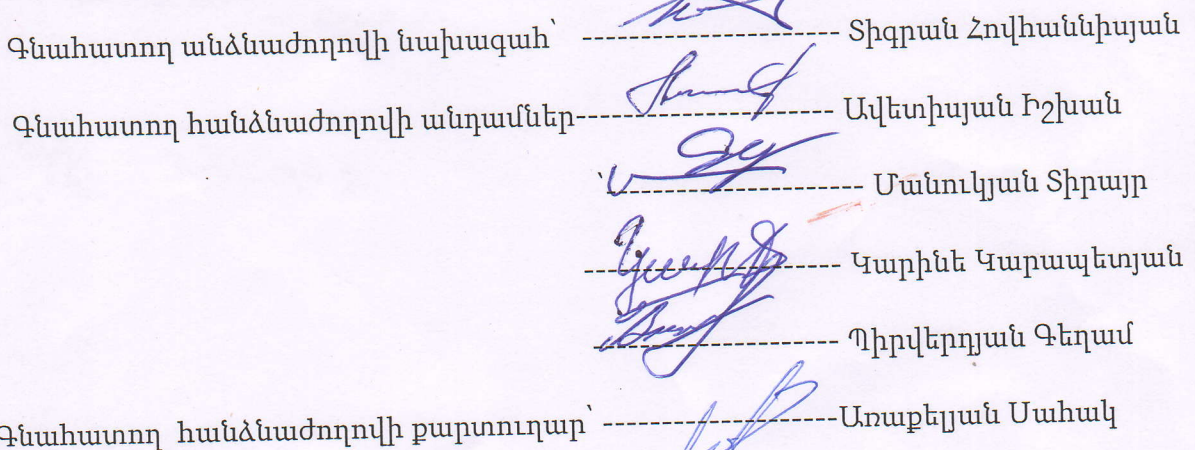 Գնահատող անձնաժողովի նախագահ՝ ---------------------- Տիգրան Հովհաննիսյան
Գնահատող հանձնաժողովի անդամներ---------------------- Ավետիսյան Իշխան
՝---------------------- Մանուկյան Տիրայր
---------------------- Կարինե Կարապետյան
--------------------- Պիրվերդյան Գեղամ
Գնահատող հանձնաժողովի քարտուղար՝ --------------------Առաքելյան Սահակ